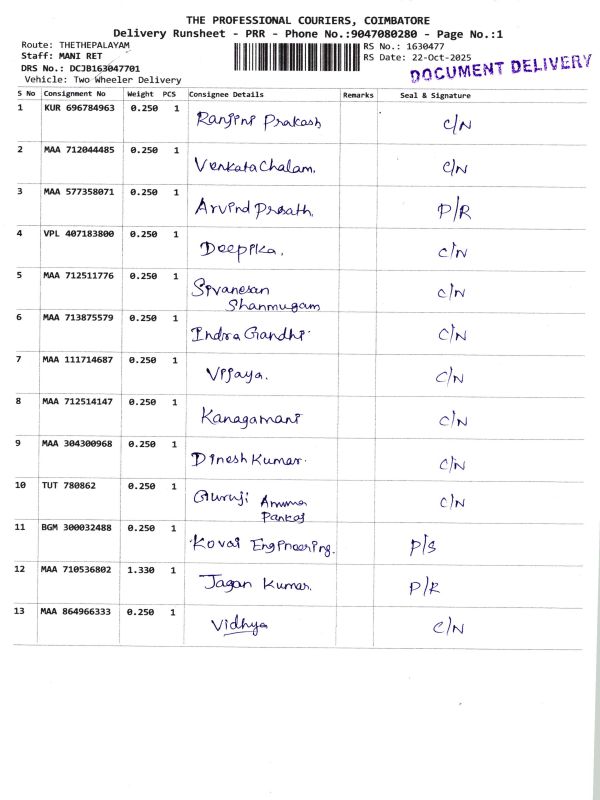 THE PROFESSIONAL COURIERS, COIMBATORE
Delivery Runsheet - PRR - Phone No.:9047080280 - Page No.:1
Route: THETHEPALAYAM
Staff: MANI RET
DRS No.: DCJB163047701
Vehicle: Two Wheeler Delivery
RS No.: 1630477
RS Date: 22-Oct-2025
DOCUMENT DELIVERY
S No Consignment No Weight PCS Consignee Details Remarks Seal & Signature
1 KUR 696784963 0.250 1 Ranjini Prakash C/N
2 MAA 712044485 0.250 1 Venkata Chalam. C/N
3 MAA 577358071 0.250 1 Arvind Prasath. P/R
4 VPL 407183800 0.250 1 Deepika. C/N
5 MAA 712511776 0.250 1 Sivanesan C/N
Shanmugam
6 MAA 713875579 0.250 1 Indra Gandhi C/N
7 MAA 111714687 0.250 1 Vijaya. C/N
8 MAA 712514147 0.250 1 Kanagamani C/N
9 MAA 304300968 0.250 1 Dinesh Kumar. C/N
10 TUT 780862 0.250 1 Guruji C/N
11 BGM 300032488 0.250 1 Kovai Engineering. P/S
12 MAA 710536802 1.330 1 Jagan Kumar. P/R
13 MAA 864966333 0.250 1 Vidhya C/N